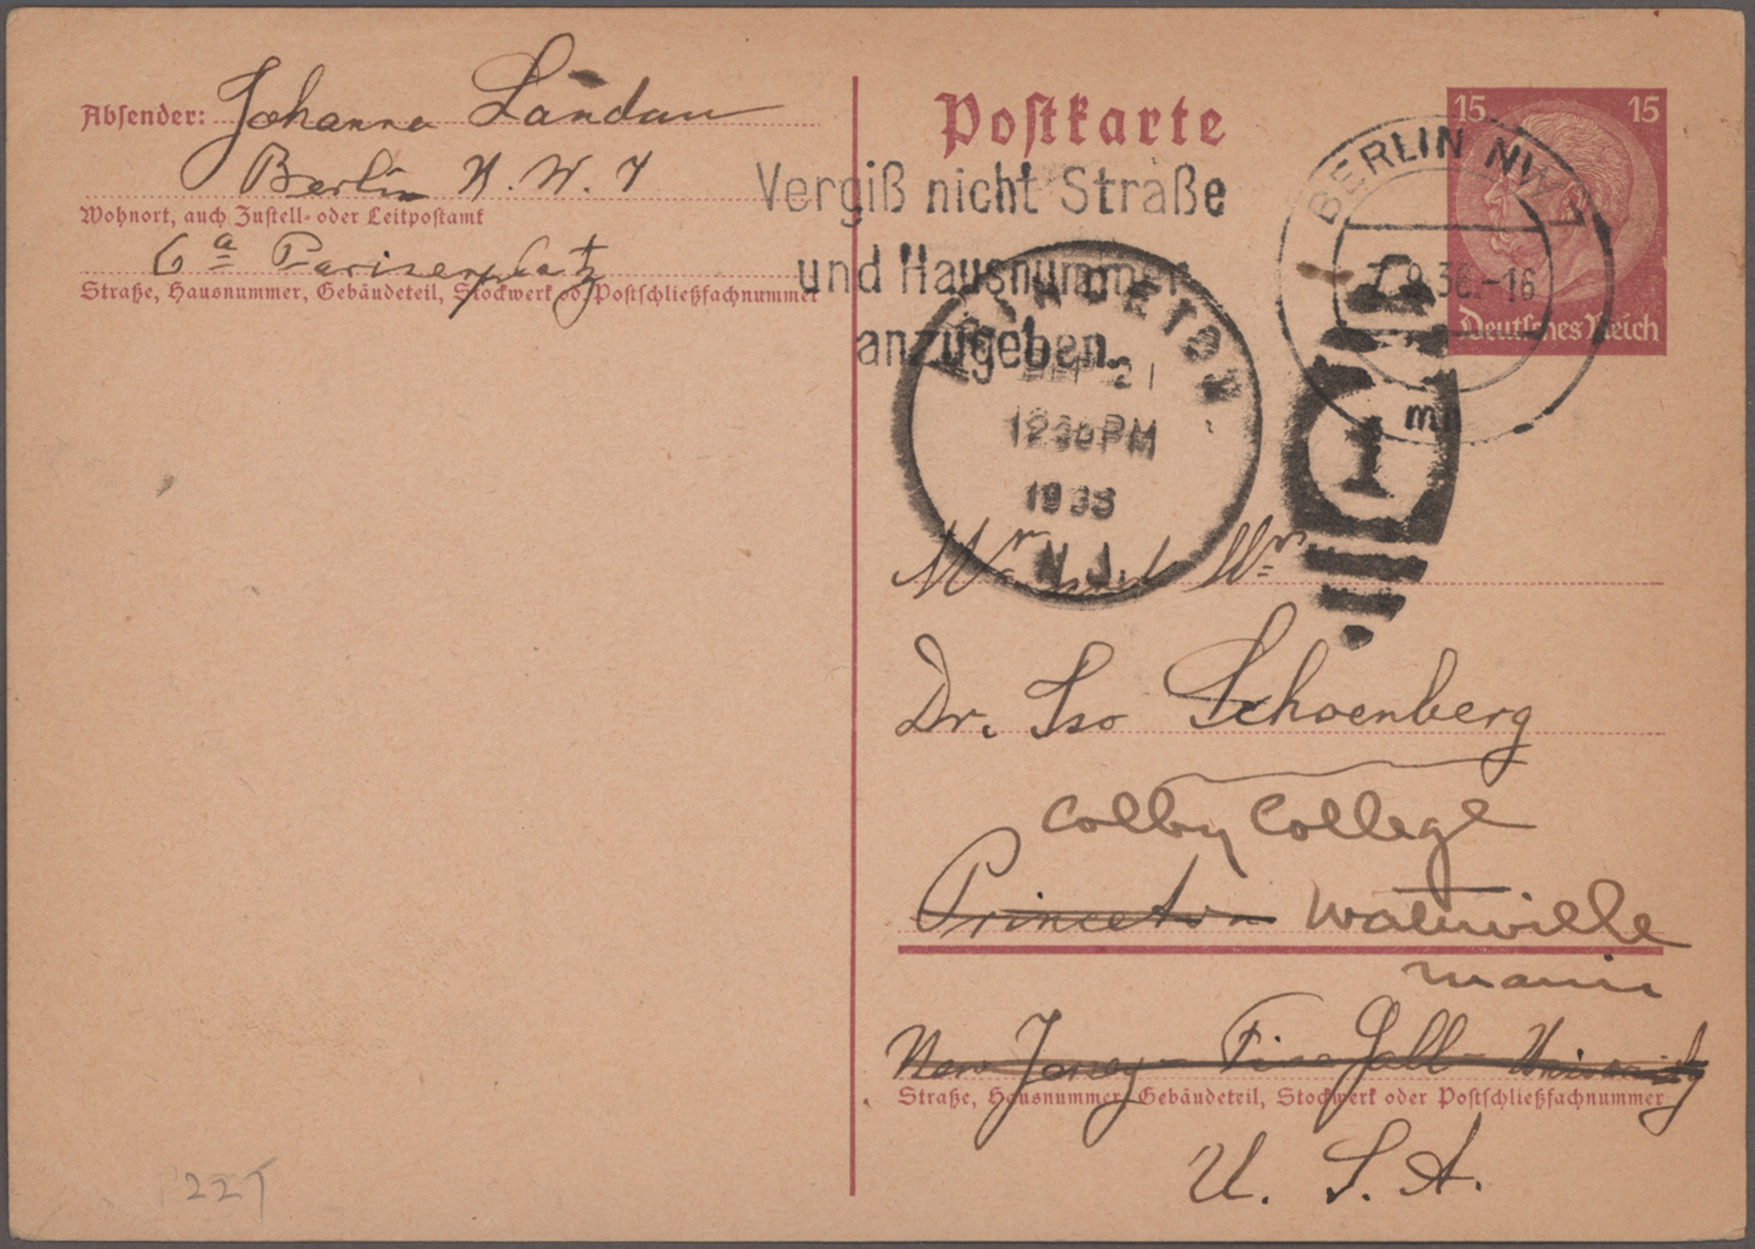 Absender: Johanna Landau
Berlin N.W. 7
Wohnort, auch Zustell- oder Leitpostamt
6a Pariserplatz
Straße, Hausnummer, Gebäudeteil, Stockwerk od. Postschließfachnummer
Postkarte
15 15
Deutsches Reich
BERLIN NW 7
7.9.36.-16
mn
Vergiß nicht Straße
und Hausnummer
anzugeben.
PRINCETON
SEP 21
1230PM
N.J.
1
Mr and Mrs
Dr. Iso Schoenberg
Colby College
Princeton Waterville
Maine
New Jersey Fine Hall University
Straße, Hausnummer, Gebäudeteil, Stockwerk oder Postschließfachnummer
U. S. A.